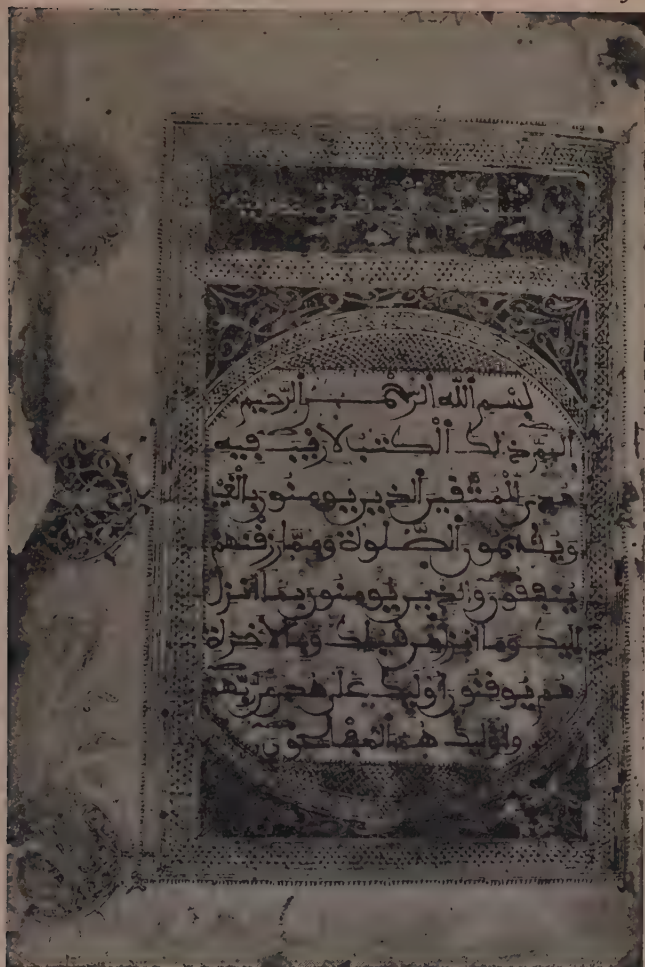 بسم الله الرحمن الرحيم
الم ذلك الكتب لا ريب فيه
هدى للمتقين الذين يومنون بالغيب
ويقيمون الصلوة ومما رزقنهم
ينفقون والذين يومنون بما أنزل
إليك وما أنزل من قبلك وبالاخرة
هم يوقنون أولئك على هدى من ربهم
وأولئك هم المفلحون